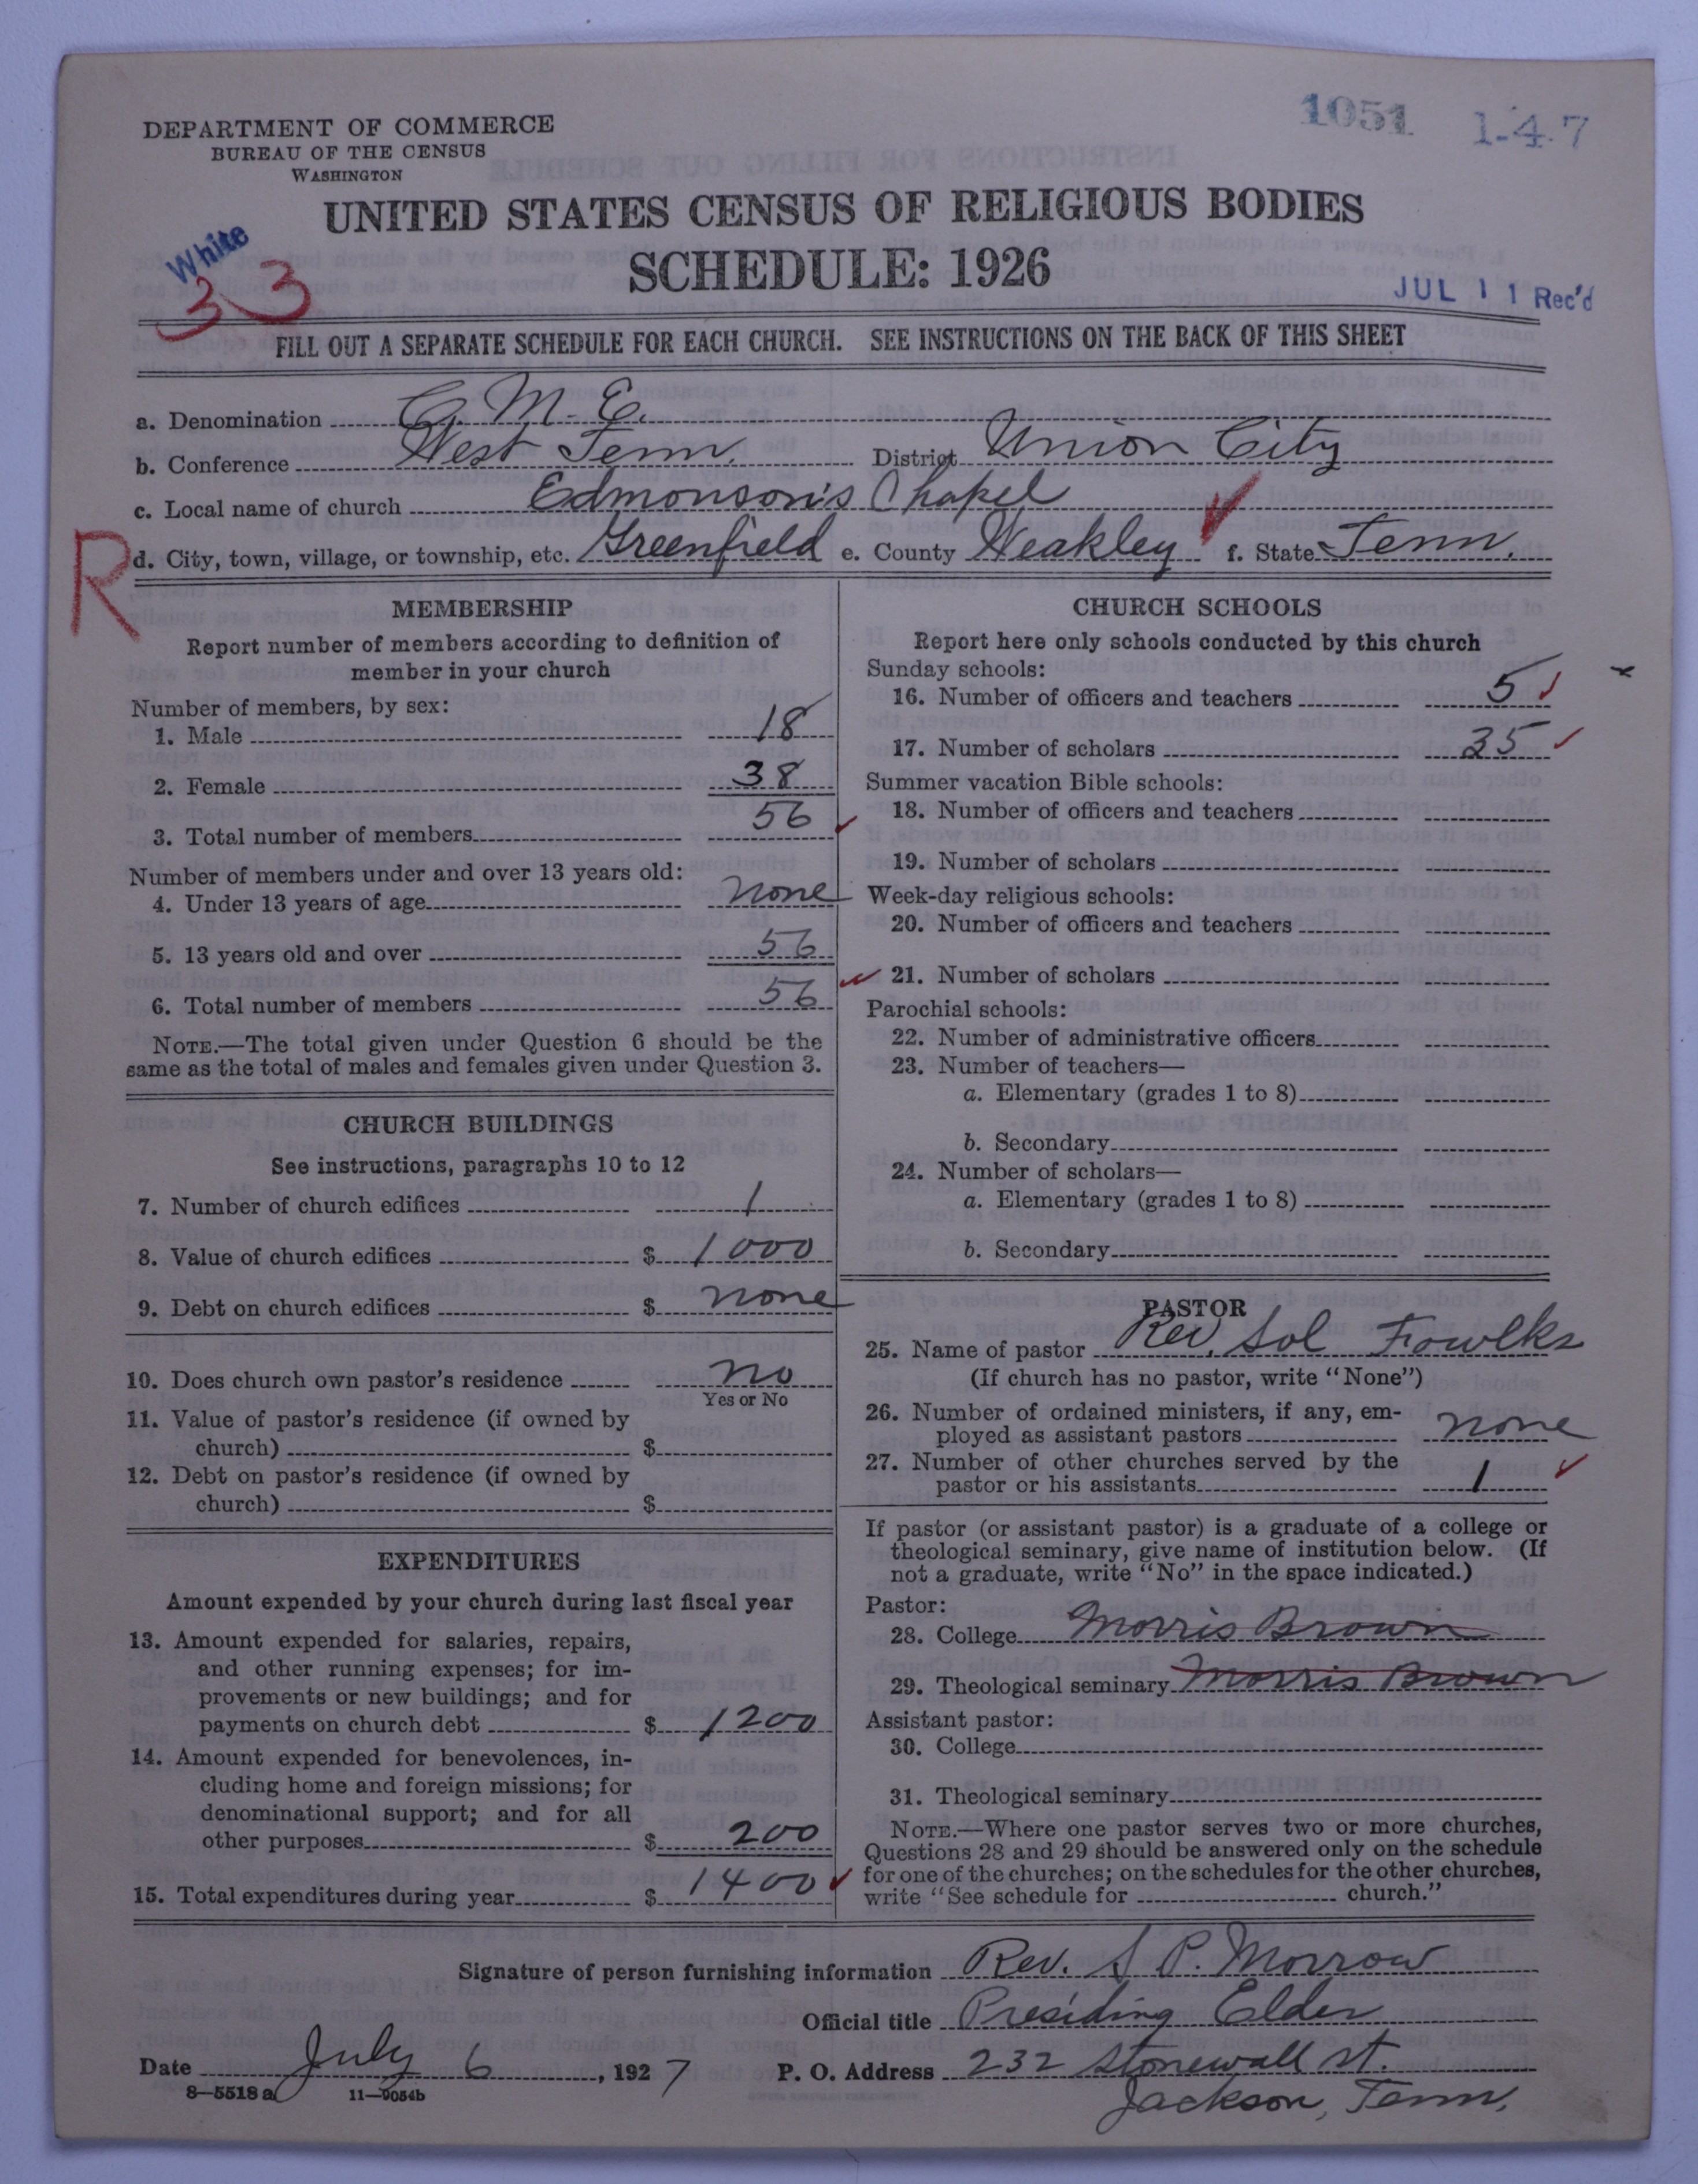 1051 1-4-7
DEPARTMENT OF COMMERCE
BUREAU OF THE CENSUS
WASHINGTON
UNITED STATES CENSUS OF RELIGIOUS BODIES
SCHEDULE: 1926
White
33
JUL 11 Rec'd
FILL OUT A SEPARATE SCHEDULE FOR EACH CHURCH. SEE INSTRUCTIONS ON THE BACK OF THIS SHEET
a. Denomination C. M. E.
b. Conference West Tenn. District Union City
c. Local name of church Edmonson's Chapel
R
d. City, town, village, or township, etc. Greenfield e. County Weakley f. State Tenn.
MEMBERSHIP
Report number of members according to definition of
member in your church
Number of members, by sex:
1. Male 18
2. Female 38
3. Total number of members 56
Number of members under and over 13 years old:
4. Under 13 years of age none
5. 13 years old and over 56
6. Total number of members 56
NOTE.—The total given under Question 6 should be the
same as the total of males and females given under Question 3.
CHURCH BUILDINGS
See instructions, paragraphs 10 to 12
7. Number of church edifices 1
8. Value of church edifices $ 1000
9. Debt on church edifices $ none
10. Does church own pastor's residence no
Yes or No
11. Value of pastor's residence (if owned by
church) $
12. Debt on pastor's residence (if owned by
church) $
EXPENDITURES
Amount expended by your church during last fiscal year
13. Amount expended for salaries, repairs,
and other running expenses; for im-
provements or new buildings; and for
payments on church debt $ 1200
14. Amount expended for benevolences, in-
cluding home and foreign missions; for
denominational support; and for all
other purposes $ 200
15. Total expenditures during year $ 1400
CHURCH SCHOOLS
Report here only schools conducted by this church
Sunday schools:
16. Number of officers and teachers 5
17. Number of scholars 35
Summer vacation Bible schools:
18. Number of officers and teachers
19. Number of scholars
Week-day religious schools:
20. Number of officers and teachers
21. Number of scholars
Parochial schools:
22. Number of administrative officers
23. Number of teachers—
a. Elementary (grades 1 to 8)
b. Secondary
24. Number of scholars—
a. Elementary (grades 1 to 8)
b. Secondary
PASTOR
25. Name of pastor Rev. Sol Fowlks
(If church has no pastor, write "None")
26. Number of ordained ministers, if any, em-
ployed as assistant pastors none
27. Number of other churches served by the
pastor or his assistants 1
If pastor (or assistant pastor) is a graduate of a college or
theological seminary, give name of institution below. (If
not a graduate, write "No" in the space indicated.)
Pastor:
28. College Morris Brown
29. Theological seminary Morris Brown
Assistant pastor:
30. College
31. Theological seminary
NOTE.—Where one pastor serves two or more churches,
Questions 28 and 29 should be answered only on the schedule
for one of the churches; on the schedules for the other churches,
write "See schedule for church."
Signature of person furnishing information Rev. S P. Morrow
Official title Presiding Elder
Date July 6, 1927 P. O. Address 232 Stonewall st.
8—5518 a 11—9054b
Jackson, Tenn.